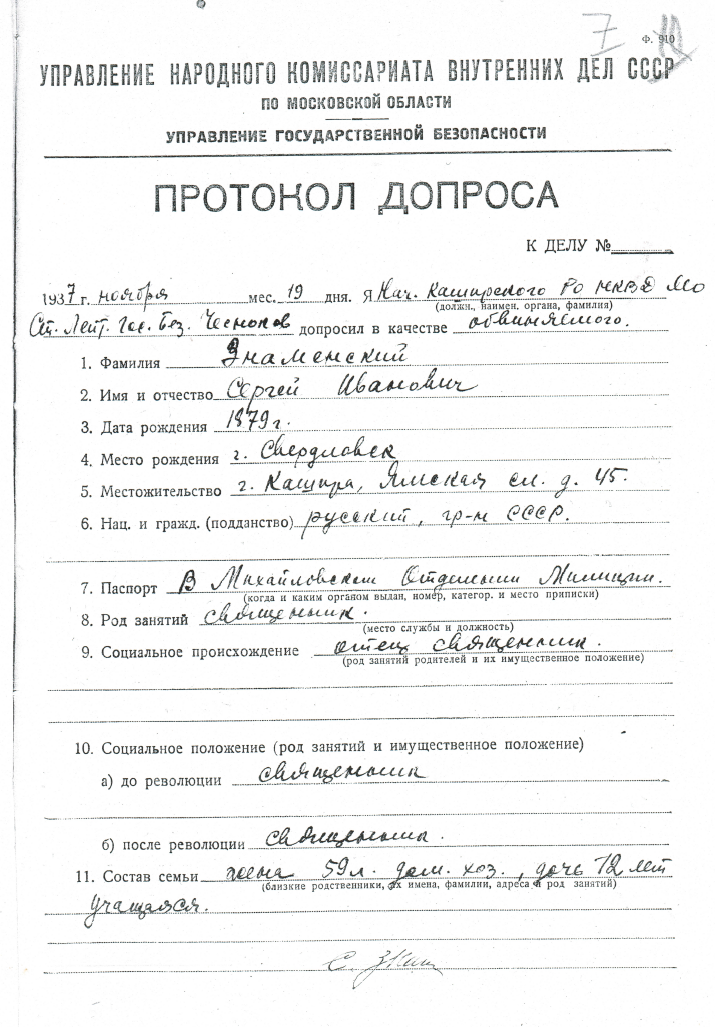 7
Ф. 910
УПРАВЛЕНИЕ НАРОДНОГО КОМИССАРИАТА ВНУТРЕННИХ ДЕЛ СССР
ПО МОСКОВСКОЙ ОБЛАСТИ
УПРАВЛЕНИЕ ГОСУДАРСТВЕННОЙ БЕЗОПАСНОСТИ
ПРОТОКОЛ ДОПРОСА
К ДЕЛУ №
1937 г. ноября мес. 19 дня. Я Нач. Каширского РО НКВД МО
(должн., наимен. органа, фамилия)
Ст. Лейт. Гос. Без. Чесноков допросил в качестве обвиняемого.
1. Фамилия Знаменский
2. Имя и отчество Сергей Иванович
3. Дата рождения 1879 г.
4. Место рождения г. Свердловск
5. Местожительство г. Кашира, Ямская сл. д. 45.
6. Нац. и гражд. (подданство) русский, гр-н СССР.
7. Паспорт В Михайловском Отделении Милиции.
(когда и каким органом выдан, номер, категор. и место приписки)
8. Род занятий священник.
(место службы и должность)
9. Социальное происхождение отец священник.
(род занятий родителей и их имущественное положение)
10. Социальное положение (род занятий и имущественное положение)
а) до революции священник
б) после революции священник.
11. Состав семьи жена 59 л. дом. хоз., дочь 12 лет
(близкие родственники, их имена, фамилии, адреса и род занятий)
учащаяся.